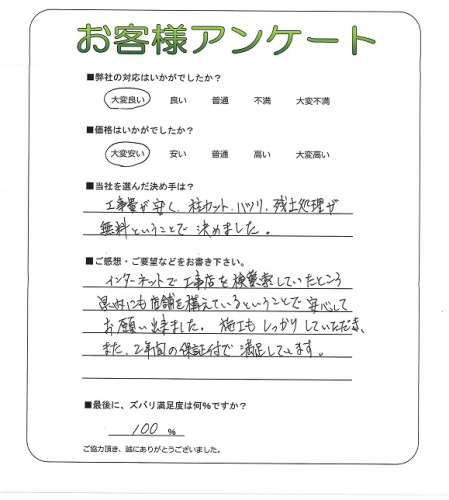 お客様アンケート
■弊社の対応はいかがでしたか？
大変良い 良い 普通 不満 大変不満
■価格はいかがでしたか？
大変安い 安い 普通 高い 大変高い
■当社を選んだ決め手は？
工事費が安く、柱カット、ハツリ、残土処理が
無料ということで決めました。
■ご感想・ご要望などをお書き下さい。
インターネットで工事店を検索していたところ
県内にも店舗を構えているということで安心して
お願い出来ました。施工もしっかりしていただき、
また、2年間の保証付で満足しています。
■最後に、ズバリ満足度は何%ですか？
100 %
ご協力頂き、誠にありがとうございました。